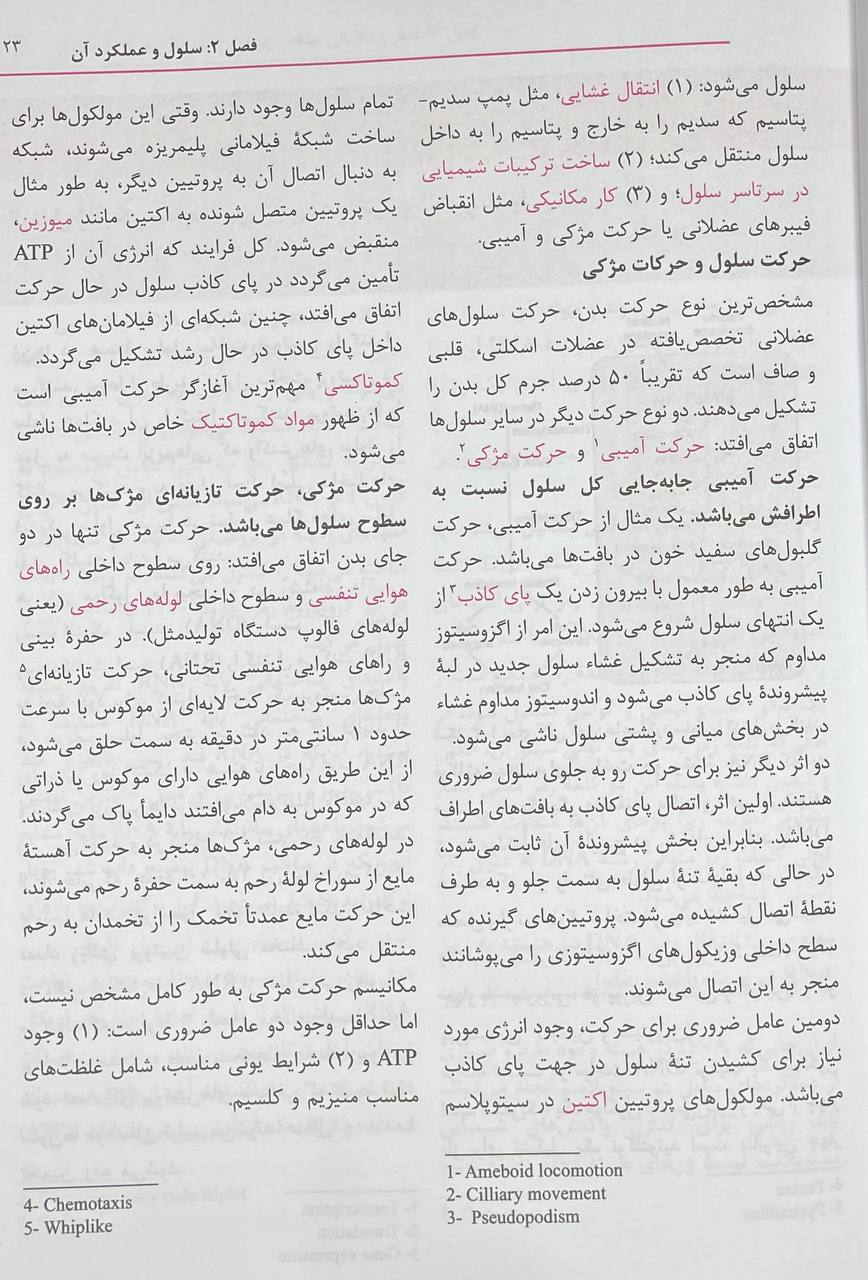 فصل ۲: سلول و عملکرد آن
۲۳
سلول می‌شود: (۱) انتقال غشایی، مثل پمپ سدیم-
پتاسیم که سدیم را به خارج و پتاسیم را به داخل
سلول منتقل می‌کند؛ (۲) ساخت ترکیبات شیمیایی
در سرتاسر سلول؛ و (۳) کار مکانیکی، مثل انقباض
فیبرهای عضلانی یا حرکت مژکی و آمیبی.
حرکت سلول و حرکات مژکی
مشخص‌ترین نوع حرکت بدن، حرکت سلول‌های
عضلانی تخصص‌یافته در عضلات اسکلتی، قلبی
و صاف است که تقریباً ۵۰ درصد جرم کل بدن را
تشکیل می‌دهند. دو نوع حرکت دیگر در سایر سلول‌ها
اتفاق می‌افتد: حرکت آمیبی۱ و حرکت مژکی۲.
حرکت آمیبی جابه‌جایی کل سلول نسبت به
اطرافش می‌باشد. یک مثال از حرکت آمیبی، حرکت
گلبول‌های سفید خون در بافت‌ها می‌باشد. حرکت
آمیبی به طور معمول با بیرون زدن یک پای کاذب۳ از
یک انتهای سلول شروع می‌شود. این امر از اگزوسیتوز
مداوم که منجر به تشکیل غشاء سلول جدید در لبۀ
پیشروندۀ پای کاذب می‌شود و اندوسیتوز مداوم غشاء
در بخش‌های میانی و پشتی سلول ناشی می‌شود.
دو اثر دیگر نیز برای حرکت رو به جلوی سلول ضروری
هستند. اولین اثر، اتصال پای کاذب به بافت‌های اطراف
می‌باشد. بنابراین بخش پیشروندۀ آن ثابت می‌شود،
در حالی که بقیۀ تنۀ سلول به سمت جلو و به طرف
نقطۀ اتصال کشیده می‌شود. پروتیین‌های گیرنده که
سطح داخلی وزیکول‌های اگزوسیتوزی را می‌پوشانند
منجر به این اتصال می‌شوند.
دومین عامل ضروری برای حرکت، وجود انرژی مورد
نیاز برای کشیدن تنۀ سلول در جهت پای کاذب
می‌باشد. مولکول‌های پروتیین اکتین در سیتوپلاسم
1- Ameboid locomotion
2- Cilliary movement
3- Pseudopodism
تمام سلول‌ها وجود دارند. وقتی این مولکول‌ها برای
ساخت شبکۀ فیلامانی پلیمریزه می‌شوند، شبکه
به دنبال اتصال آن به پروتیین دیگر، به طور مثال
یک پروتیین متصل شونده به اکتین مانند میوزین،
منقبض می‌شود. کل فرایند که انرژی آن از ATP
تأمین می‌گردد در پای کاذب سلول در حال حرکت
اتفاق می‌افتد، چنین شبکه‌ای از فیلامان‌های اکتین
داخل پای کاذب در حال رشد تشکیل می‌گردد.
کموتاکسی۴ مهم‌ترین آغازگر حرکت آمیبی است
که از ظهور مواد کموتاکتیک خاص در بافت‌ها ناشی
می‌شود.
حرکت مژکی، حرکت تازیانه‌ای مژک‌ها بر روی
سطوح سلول‌ها می‌باشد. حرکت مژکی تنها در دو
جای بدن اتفاق می‌افتد: روی سطوح داخلی راه‌های
هوایی تنفسی و سطوح داخلی لوله‌های رحمی (یعنی
لوله‌های فالوپ دستگاه تولیدمثل). در حفرۀ بینی
و راهای هوایی تنفسی تحتانی، حرکت تازیانه‌ای۵
مژک‌ها منجر به حرکت لایه‌ای از موکوس با سرعت
حدود ۱ سانتی‌متر در دقیقه به سمت حلق می‌شود،
از این طریق راه‌های هوایی دارای موکوس یا ذراتی
که در موکوس به دام می‌افتند دایماً پاک می‌گردند.
در لوله‌های رحمی، مژک‌ها منجر به حرکت آهستۀ
مایع از سوراخ لولۀ رحم به سمت حفرۀ رحم می‌شوند،
این حرکت مایع عمدتاً تخمک را از تخمدان به رحم
منتقل می‌کند.
مکانیسم حرکت مژکی به طور کامل مشخص نیست،
اما حداقل وجود دو عامل ضروری است: (۱) وجود
ATP و (۲) شرایط یونی مناسب، شامل غلظت‌های
مناسب منیزیم و کلسیم.
4- Chemotaxis
5- Whiplike